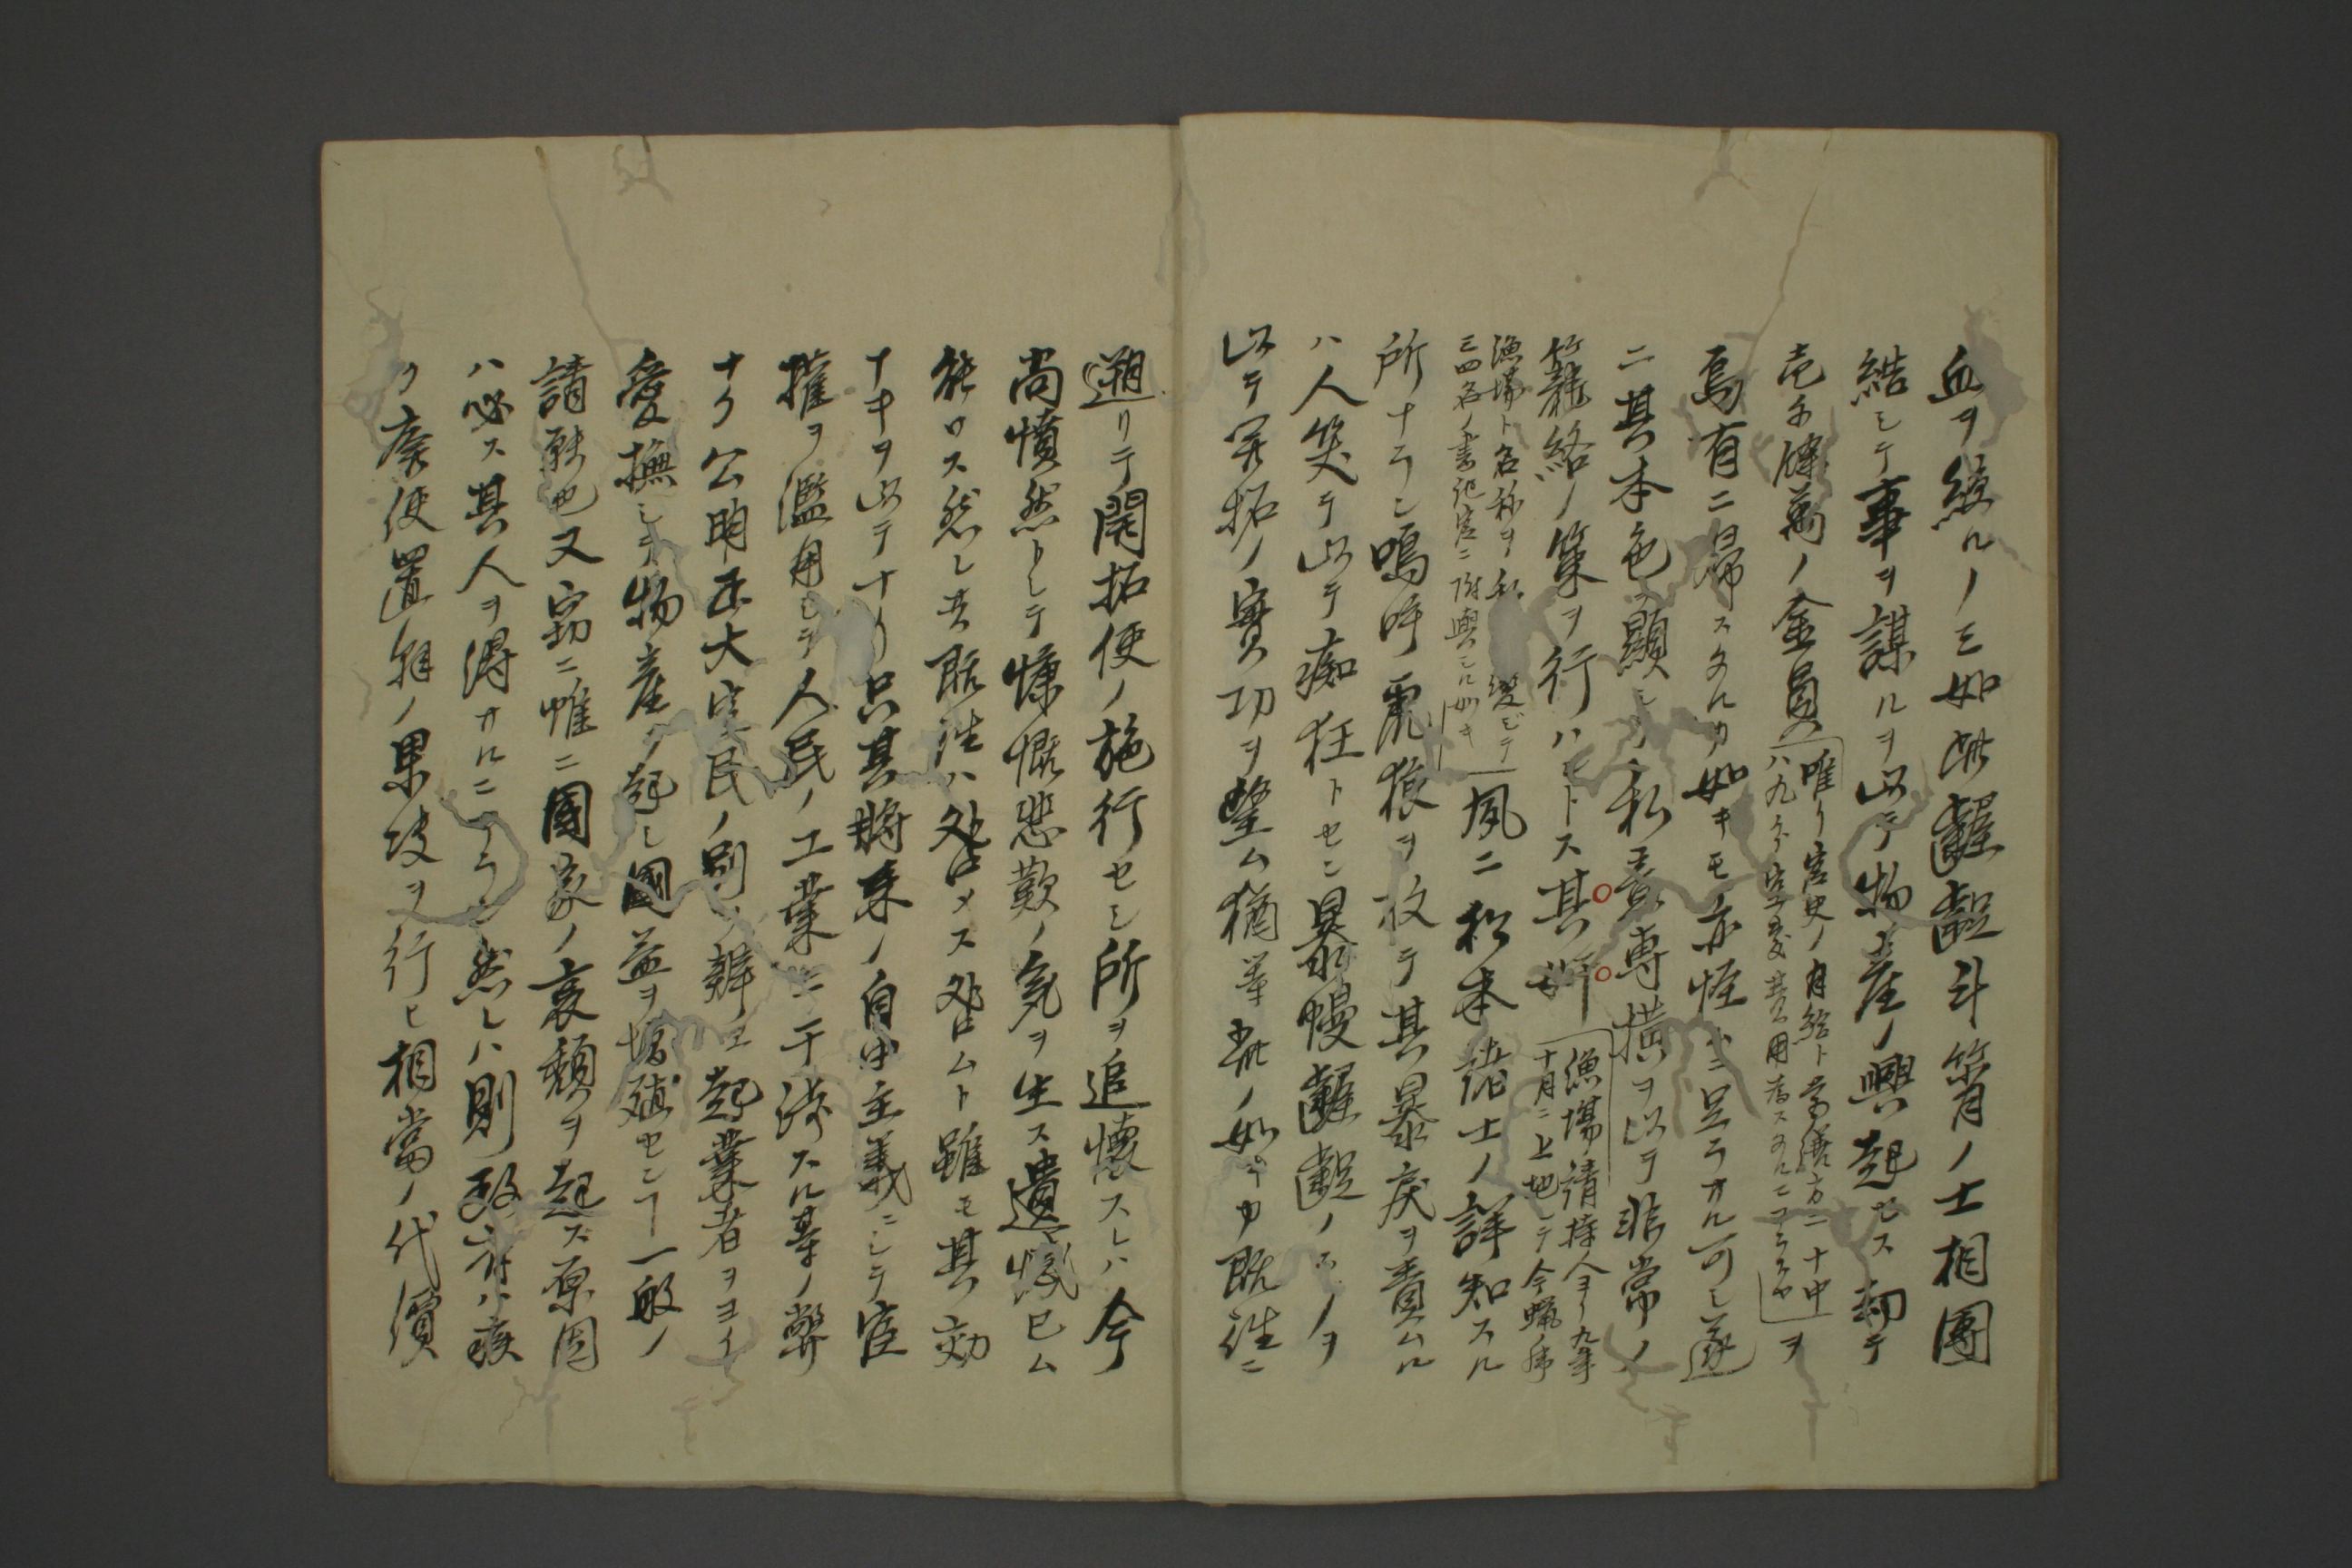 血ヲ絞ルノミ如此齷齪斗筲ノ士相團
結シテ事ヲ謀ルヲ以テ物産ノ興起セス却テ
壱百余萬ノ金員
唯リ官吏ノ月給ト営繕方ニ十中
八九ヲ空費其用為スタルニアラスヤ
ヲ
烏有ニ帰スタルカ如キモ亦怪ムニ足ラサル可シ遂
ニ其本色ヲ顕シテ私意専横ヲ以テ非常ノ
籠絡ノ策ヲ行ハントス其所
漁場請持人ヨリ九年
十月ニ上地シテ今
漁場ト名称ヲ私ニ変シテ
三四名ノ書記官ニ附與シル如キ
夙ニ松本諸士ノ詳知スル
所ナラン嗚呼馬猿ヲ放テ其暴戻ヲ責ムル
ハ人笑テ以テ痴狂トセン暴慢齷齪ノモノヲ
以テ開拓ノ實功ヲ望ム猶筆此ノ如キカ既往ニ
遡リテ開拓使ノ施行セシ所ヲ追懐スレハ今
尚憤然トシテ慷慨悲歎ノ気ヲ生ス遺憾已ム
能ハス然レ共既往ハ咎メス咎ムト雖モ其効
ナキヲ以テナリ只其将来ノ自由主義ニシテ官
権ヲ濫用シテ人民ノ工業ニ干渉スル等ノ弊
ナク公明正大官民ノ別ヲ辨エ起業者ヲヨク
愛撫シテ物産ヲ起シ國益ヲ増殖センヿ一般ノ
請願也又竊ニ惟ニ國家ノ衰頽ヲ起ス原因
ハ必ス其人ヲ得サルニアラン然レハ則政府ハ該
ク療使置縣ノ果決ヲ行ヒ相當ノ代價